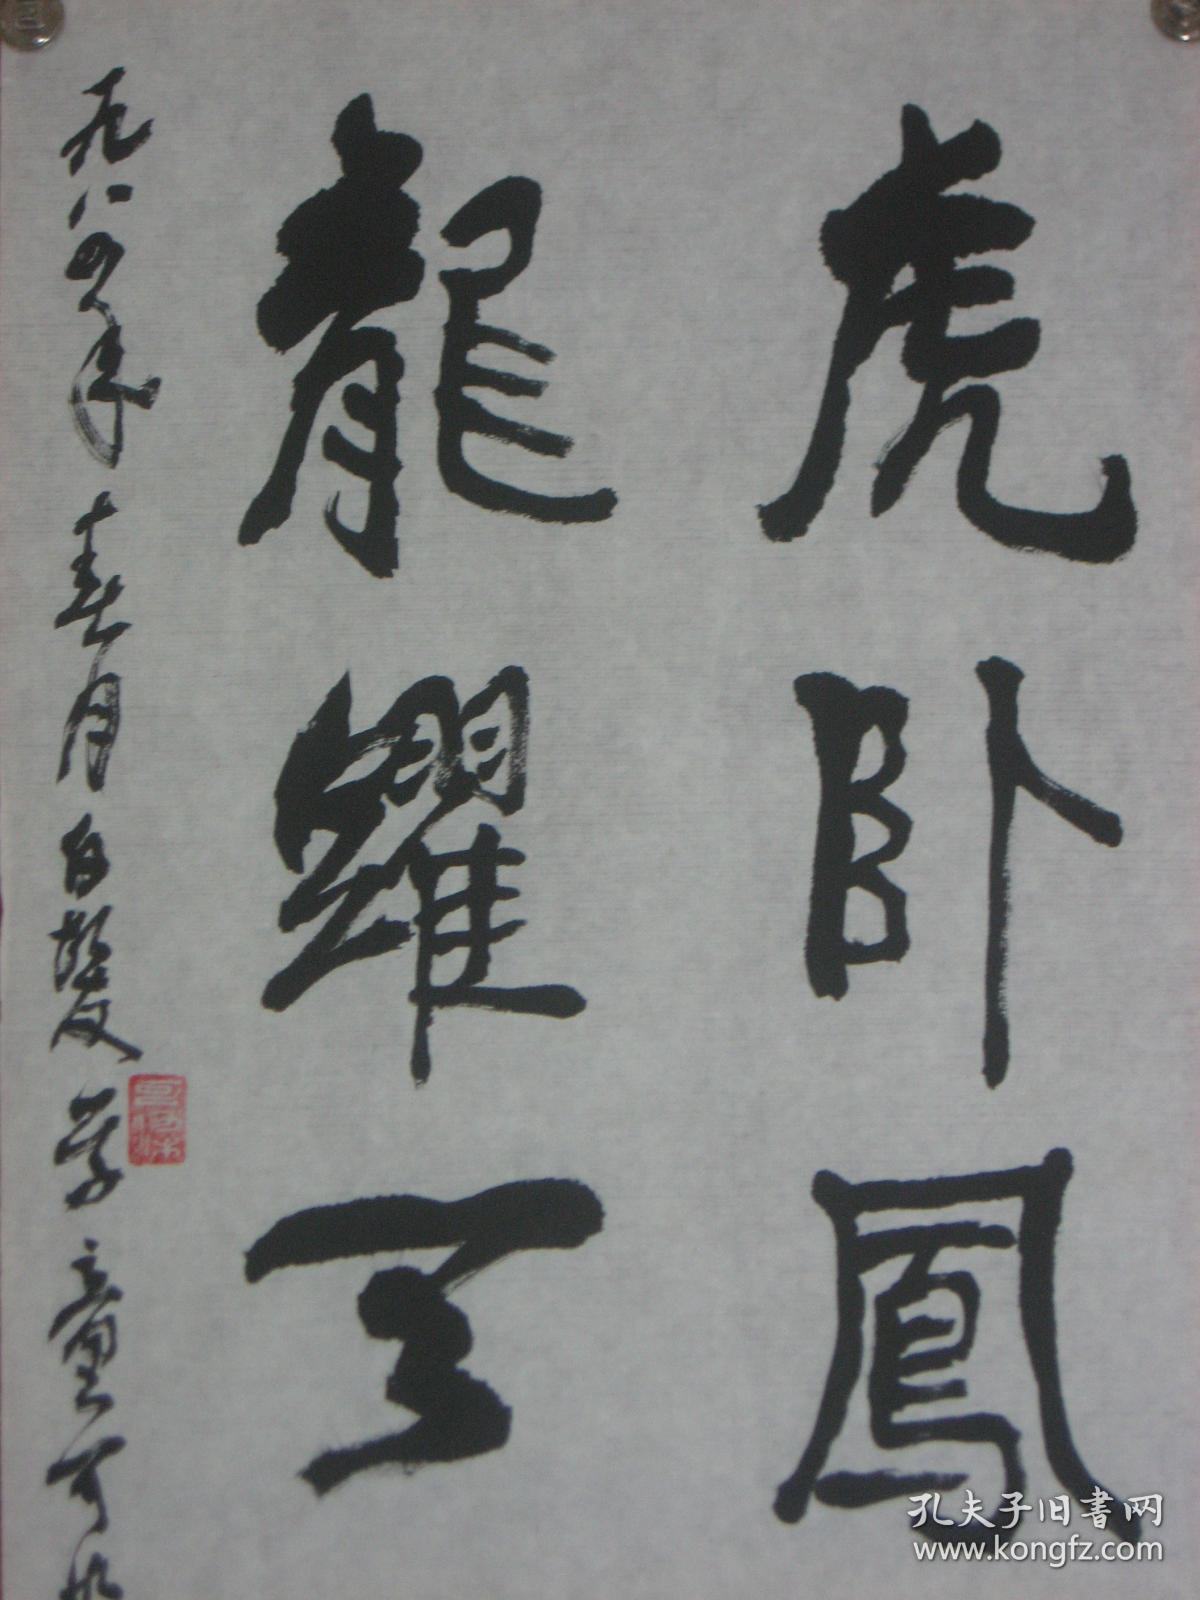 虎卧鳳
龍躍天
一九八四年春月白髮学童可
孔夫子旧書网
www.kongfz.com